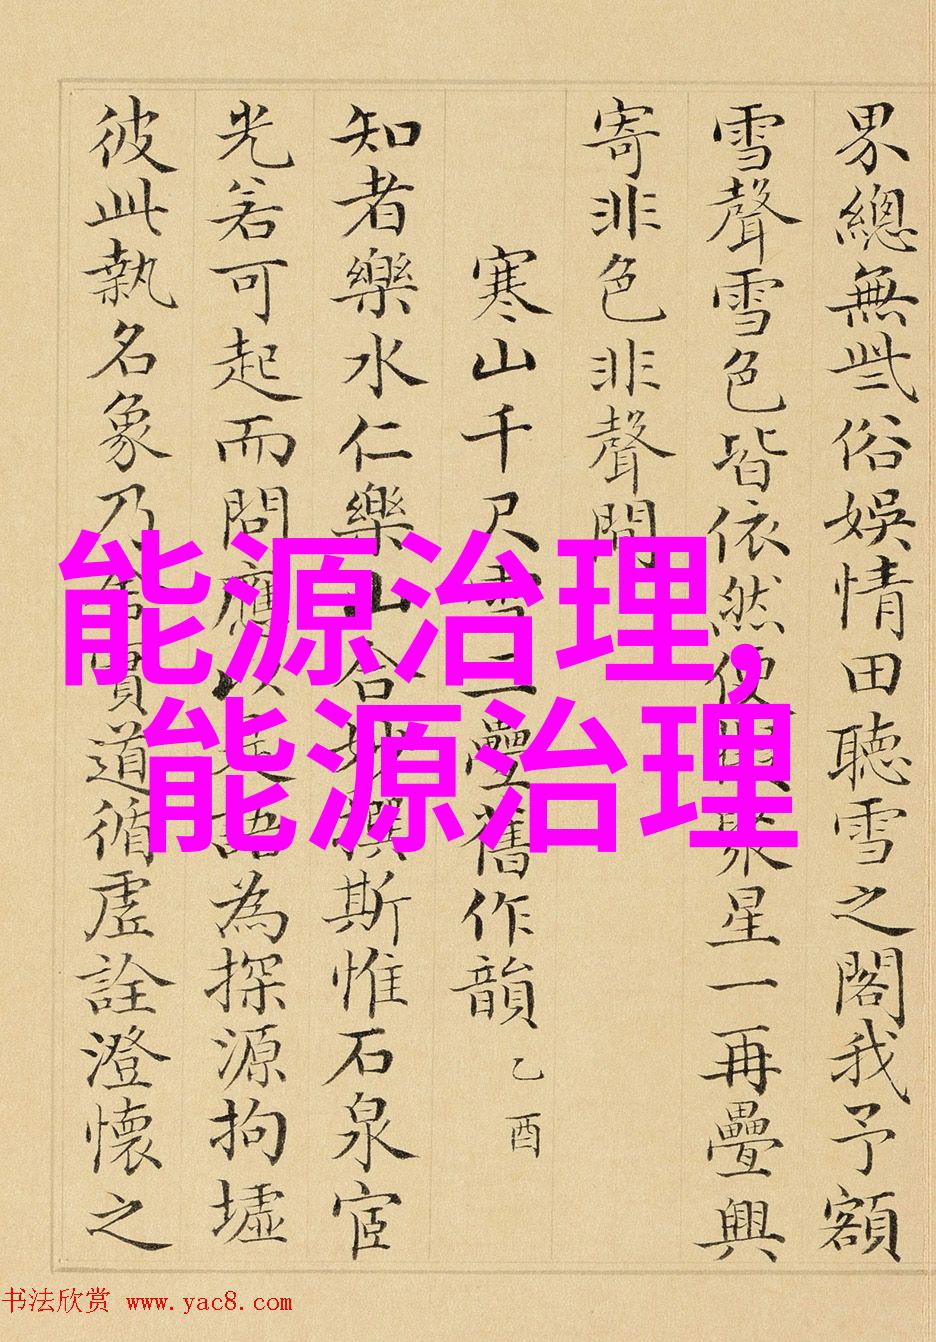 界總無此俗娛情田聽雪之閣我予額
雪聲雪色皆依然便星一再疊興
寄非色非聲間
寒山千尺雪二疊舊作韻 乙酉
知者樂水仁樂山合撰斯惟石泉宦
光若可起而問應以是語為探源拘墟
彼此執名象乃有賓道循虛詮澄懷之
能源治理,
能源治理
书法欣赏 www.yac8.com